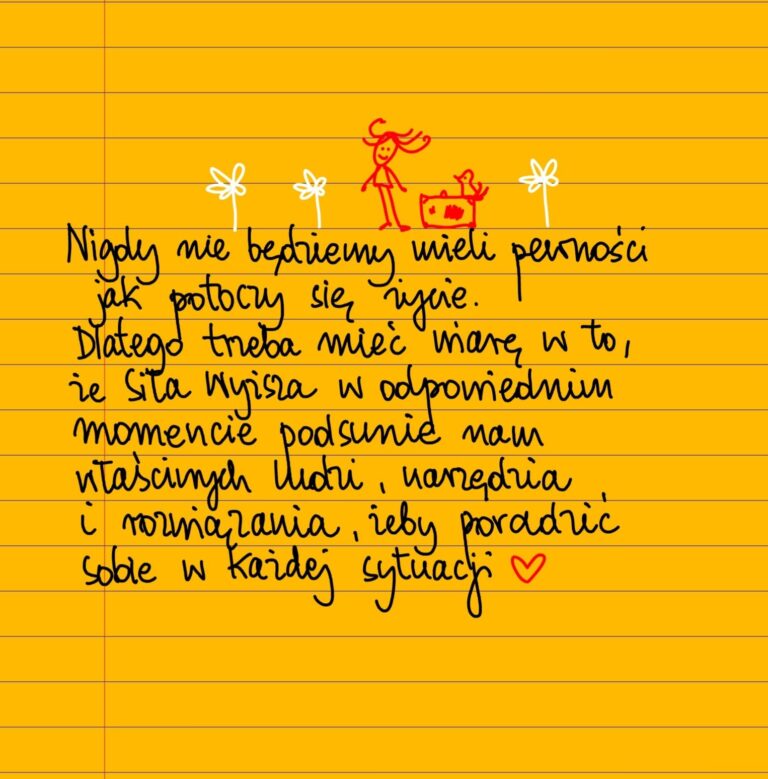 Nigdy nie będziemy mieli pewności
jak potoczy się życie.
Dlatego trzeba mieć wiarę w to,
że Siła Wyższa w odpowiednim
momencie podsunie nam
właściwych ludzi, narzędzia
i rozwiązania, żeby poradzić
sobie w każdej sytuacji